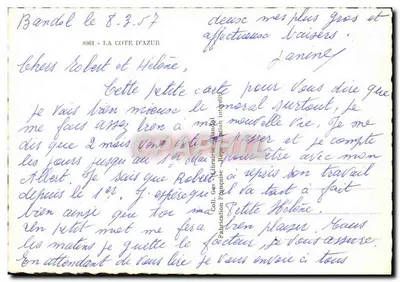 Bandol le 8.3.57
8061 - LA COTE D'AZUR
Chers Robert et Hélène,
Cette petite carte pour vous dire que
je vais bien mieux le moral surtout, je
me fais assez bien à ma nouvelle vie. Je me
dis que 2 mois vont passer et je compte
les jours jusqu'au pour être avec mon
Albert. Je sais que Robert a repris son travail
depuis le 1er. J'espère qu'il va tout à fait
bien ainsi que toi ma Petite Hélène.
Un petit mot me fera bien plaisir. Tous
les matins je guette le facteur, je vous assure.
En attendant de vous lire je vous envoie à tous
deux mes plus gros et
affectueux baisers.
Janine